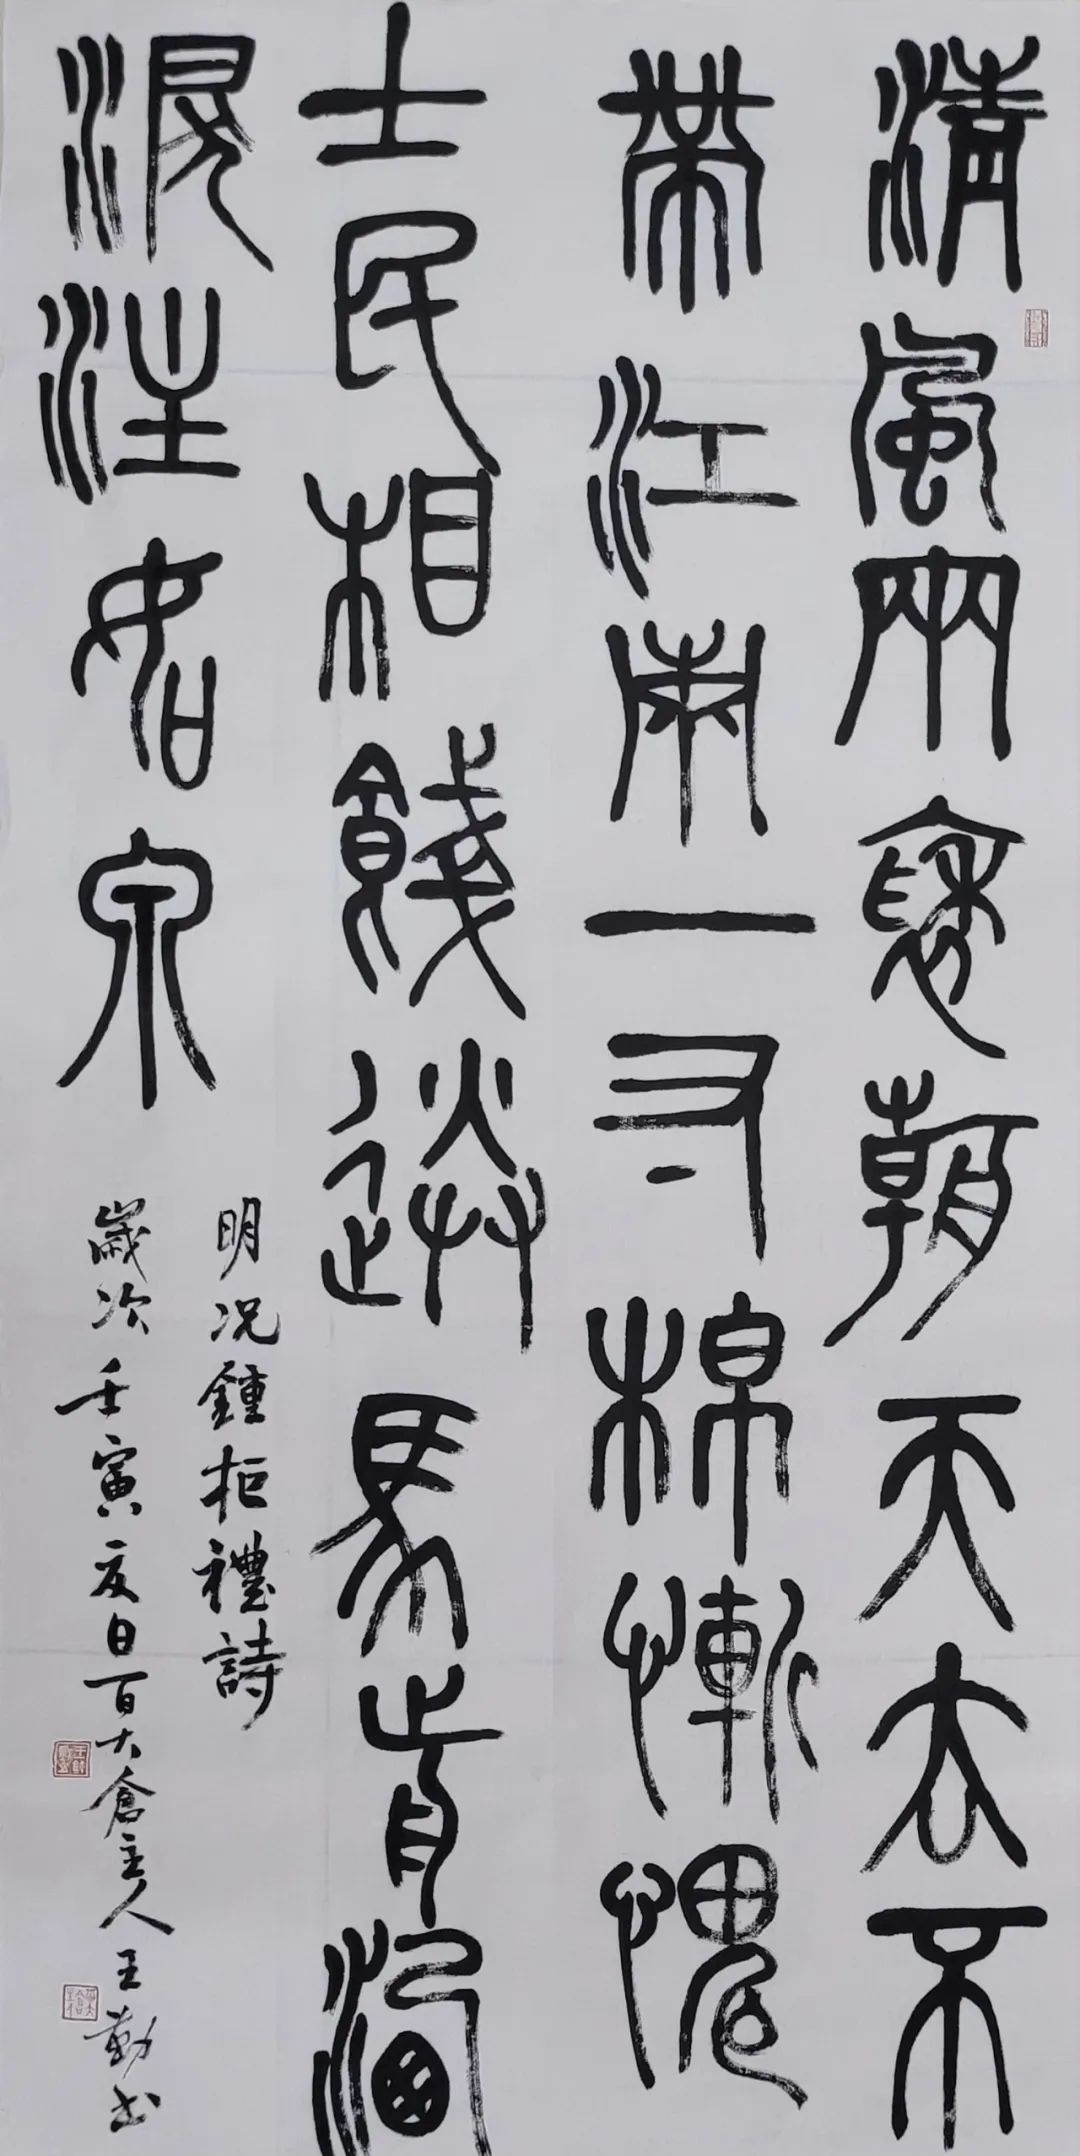 清風兩袖朝天去不
帶江南一寸棉慚愧
士民相餞送馬前洒
淚注如泉
明况鍾拒禮詩
歲次壬寅夏日百大倉主人王勤书